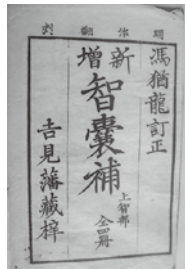 馮猶龍訂正
新增
智囊補
上智部
全四冊
吉見藩藏梓